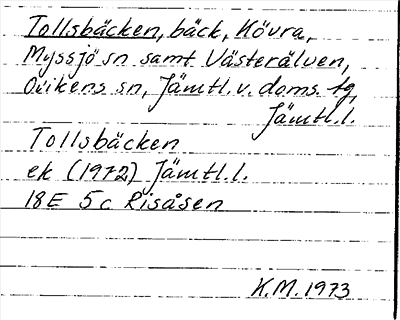 Tollsbäcken, bäck, Hövra,
Myssjö sn samt Västerälven,
Ovikens sn, Jämtl. v. doms. tg,
Jämtl.l.
Tollsbäcken
ek (1972) Jämtl.l.
18E 5c Risåsen
K.M. 1973